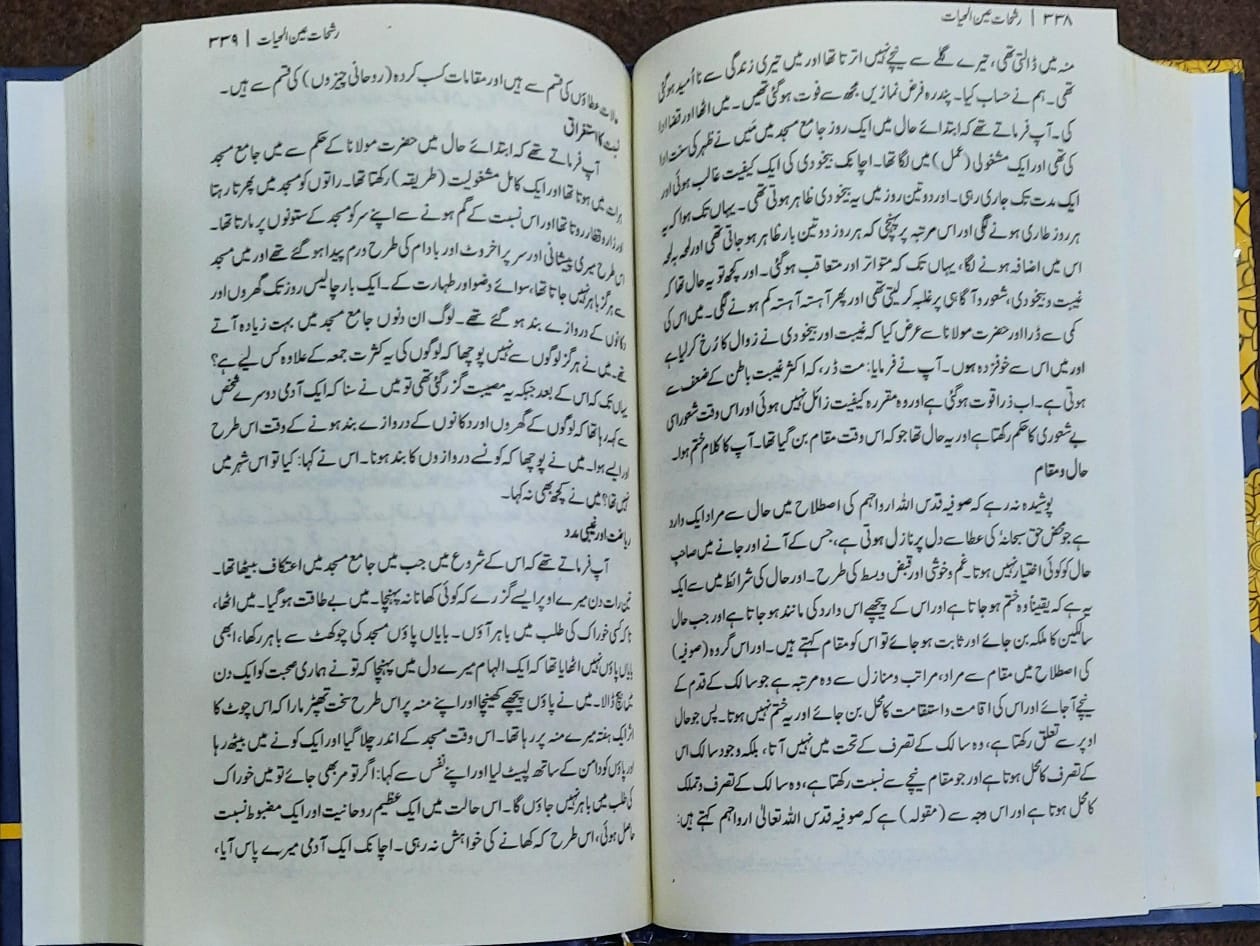 ۳۳۸ | رشحات عین الحیات
منہ میں ڈالتی تھی، تیرے گلے سے نیچے نہیں اترتا تھا اور میں تیری زندگی سے ناامید ہوگئی
تھی۔ ہم نے حساب کیا۔ پندرہ فرض نمازیں مجھ سے فوت ہوگئی تھیں۔ میں اٹھا اور قضا ادا
کی۔ آپ فرماتے تھے کہ ابتدائے حال میں ایک روز جامع مسجد میں مَیں نے ظہر کی سنت ادا
کی تھی اور ایک مشغولی (عمل) میں لگا تھا۔ اچانک بیخودی کی ایک کیفیت غالب ہوئی اور
ایک مدت تک جاری رہی۔ اور دو تین روز میں یہ بیخودی ظاہر ہوتی تھی۔ یہاں تک ہوا کہ یہ
ہر روز طاری ہونے لگی اور اس مرتبہ پر پہنچی کہ ہر روز دو تین بار ظاہر ہو جاتی تھی اور لمحہ بہ لمحہ
اس میں اضافہ ہونے لگا، یہاں تک کہ متواتر اور متعاقب ہوگئی۔ اور کچھ تو یہ حال تھا کہ
غیبت و بیخودی، شعور و آگاہی پر غلبہ کر لیتی تھی اور پھر آہستہ آہستہ کم ہونے لگی۔ میں اس کی
کمی سے ڈرا اور حضرت مولانا سے عرض کیا کہ غیبت اور بیخودی نے زوال کا رُخ کر لیا ہے
اور میں اس سے خوفزدہ ہوں۔ آپ نے فرمایا: مت ڈر، کہ اکثر غیبت باطن کے ضعف سے
ہوتی ہے۔ اب ذرا قوت ہوگئی ہے اور وہ مقررہ کیفیت زائل نہیں ہوئی اور اس وقت شعور اسی
بے شعوری کا حکم رکھتا ہے اور یہ حال تھا جو کہ اس وقت مقام بن گیا تھا۔ آپ کا کلام ختم ہوا۔
حال و مقام
پوشیدہ نہ رہے کہ صوفیہ قدس اللہ ارواحہم کی اصطلاح میں حال سے مراد ایک وارد
ہے جو محض حق سبحانہٗ کی عطا سے دل پر نازل ہوتی ہے، جس کے آنے اور جانے میں صاحبِ
حال کو کوئی اختیار نہیں ہوتا۔ غم و خوشی اور قبض و بسط کی طرح۔ اور حال کی شرائط میں سے ایک
یہ ہے کہ یقیناً وہ ختم ہو جاتا ہے اور اس کے پیچھے اس وارد کی مانند ہو جاتا ہے اور جب حال
سالکین کا ملکہ بن جائے اور ثابت ہو جائے تو اس کو مقام کہتے ہیں۔ اور اس گروہ (صوفیہ)
کی اصطلاح میں مقام سے مراد، مراتب و منازل سے وہ مرتبہ ہے جو سالک کے قدم کے
نیچے آ جائے اور اس کی اقامت و استقامت کا محل بن جائے اور یہ ختم نہیں ہوتا۔ پس جو حال
اوپر سے تعلق رکھتا ہے، وہ سالک کے تصرف کے تحت میں نہیں آتا، بلکہ وجودِ سالک اس
کے تصرف کا محل ہوتا ہے اور جو مقام نیچے سے نسبت رکھتا ہے، وہ سالک کے تصرف و تملک
کا محل ہوتا ہے اور اس وجہ سے (مقولہ) ہے کہ صوفیہ قدس اللہ تعالیٰ ارواحہم کہتے ہیں:
رشحات عین الحیات | ۳۳۹
حالات عطاؤں کی قسم سے ہیں اور مقامات کسب کردہ (روحانی چیزوں) کی قسم سے ہیں۔
نسبت کا استغراق
آپ فرماتے تھے کہ ابتدائے حال میں حضرت مولانا کے حکم سے میں جامع مسجد
ہرات میں ہوتا تھا اور ایک کامل مشغولیت (طریقہ) رکھتا تھا۔ راتوں کو مسجد میں پھرتا رہتا
اور زار و قطار روتا تھا اور اس نسبت کے گم ہونے سے اپنے سر کو مسجد کے ستونوں پر مارتا تھا۔
اس طرح میری پیشانی اور سر پر اخروٹ اور بادام کی طرح ورم پیدا ہو گئے تھے اور میں مسجد
سے ہرگز باہر نہیں جاتا تھا، سوائے وضو اور طہارت کے۔ ایک بار چالیس روز تک گھروں اور
دکانوں کے دروازے بند ہو گئے تھے۔ لوگ ان دنوں جامع مسجد میں بہت زیادہ آتے
تھے۔ میں نے ہرگز لوگوں سے نہیں پوچھا کہ لوگوں کی یہ کثرت جمعہ کے علاوہ کس لیے ہے؟
یہاں تک کہ اس کے بعد جبکہ یہ مصیبت گزر گئی تھی تو میں نے سنا کہ ایک آدمی دوسرے شخص
سے کہہ رہا تھا کہ لوگوں کے گھروں اور دکانوں کے دروازے بند ہونے کے وقت اس طرح
اور ایسے ہوا۔ میں نے پوچھا کہ کونسے دروازوں کا بند ہونا۔ اس نے کہا: کیا تو اس شہر میں
نہیں تھا؟ میں نے کچھ بھی نہ کہا۔
ریاضت اور غیبی مدد
آپ فرماتے تھے کہ اس کے شروع میں جب میں جامع مسجد میں اعتکاف بیٹھا تھا۔
تین رات دن میرے اوپر ایسے گزرے کہ کوئی کھانا نہ پہنچا۔ میں بے طاقت ہوگیا۔ میں اٹھا،
تاکہ کسی خوراک کی طلب میں باہر آؤں۔ بایاں پاؤں مسجد کی چوکھٹ سے باہر رکھا، ابھی
پاؤں نہیں اٹھایا تھا کہ ایک الہام میرے دل میں پہنچا کہ تونے ہماری صحبت کو ایک دن
میں بیچ ڈالا۔ میں نے پاؤں پیچھے کھینچا اور اپنے منہ پر اس طرح سخت تھپڑ مارا کہ اس چوٹ کا
اثر ایک ہفتہ میرے منہ پر رہا تھا۔ اس وقت مسجد کے اندر چلا گیا اور ایک کونے میں بیٹھ رہا
اور پاؤں کو دامن کے ساتھ لپیٹ لیا اور اپنے نفس سے کہا: اگر تو مر بھی جائے تو میں خوراک
کی طلب میں باہر نہیں جاؤں گا۔ اس حالت میں ایک عظیم روحانیت اور ایک مضبوط نسبت
حاصل ہوئی، اس طرح کہ کھانے کی خواہش نہ رہی۔ اچانک ایک آدمی میرے پاس آیا،